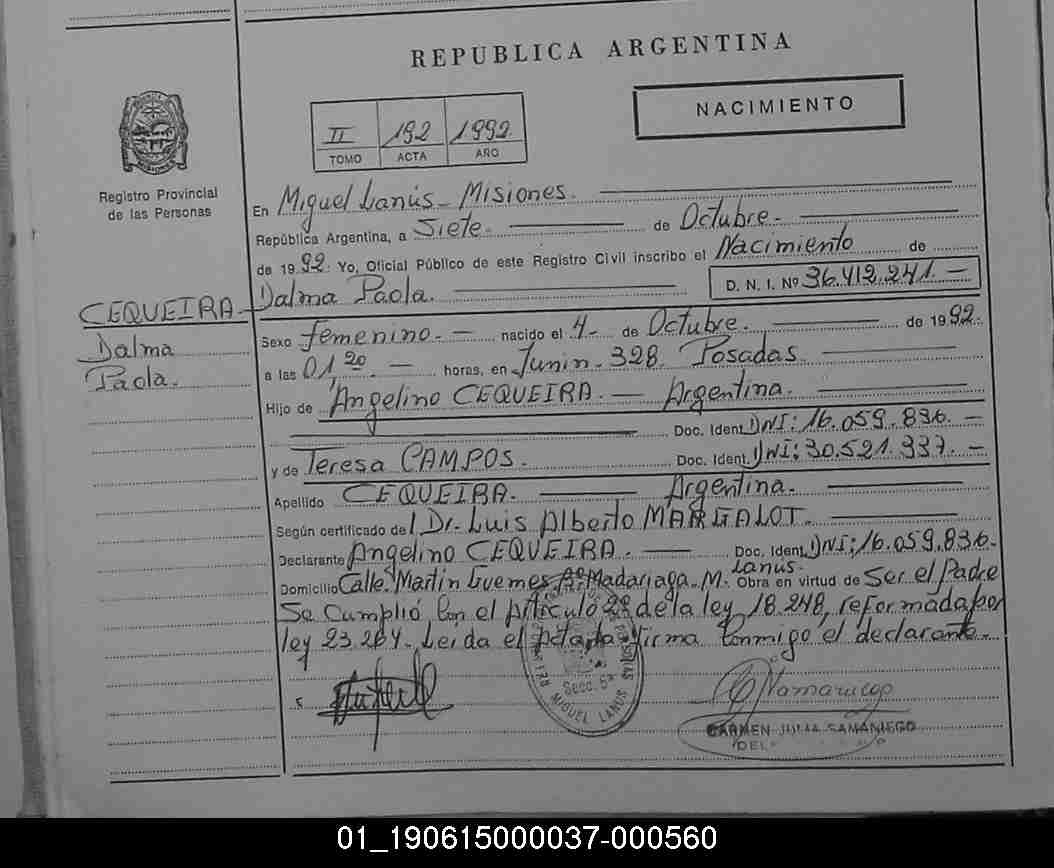 REPUBLICA ARGENTINA
NACIMIENTO
II 192 1992
TOMO ACTA AÑO
Registro Provincial
de las Personas
En Miguel Lanús - Misiones.
República Argentina, a Siete. de Octubre.
de 1992. Yo, Oficial Público de este Registro Civil inscribo el Nacimiento de
Dalma Paola. D. N. I. Nº 36.412.241. —
CEQUEIRA
Dalma
Paola.
Sexo Femenino. — nacido el 4 - de Octubre. de 1992.
a las 01,20. — horas, en Junin. 328. Posadas
Hijo de Angelino CEQUEIRA. — Argentina.
Doc. Ident. DNI: 16.059.836. —
y de Teresa CAMPOS. Doc. Ident. DNI: 30.521.337. —
Apellido CEQUEIRA. Argentina.
Según certificado del Dr. Luis Alberto MARGALOT.
Declarante Angelino CEQUEIRA. Doc. Ident. DNI: 16.059.836.
Domicilio Calle. Martin Guemes Bº Madariaga. M. Lanus. Obra en virtud de Ser el Padre
Se Cumplió Con el Artículo 2º de la ley 18.248, reformada por
ley 23.264. Leida el Acta la firma Conmigo el declarante.
Secc. 5ª
MIGUEL LANUS
CARMEN JULIA SAMANIEGO
01_190615000037-000560